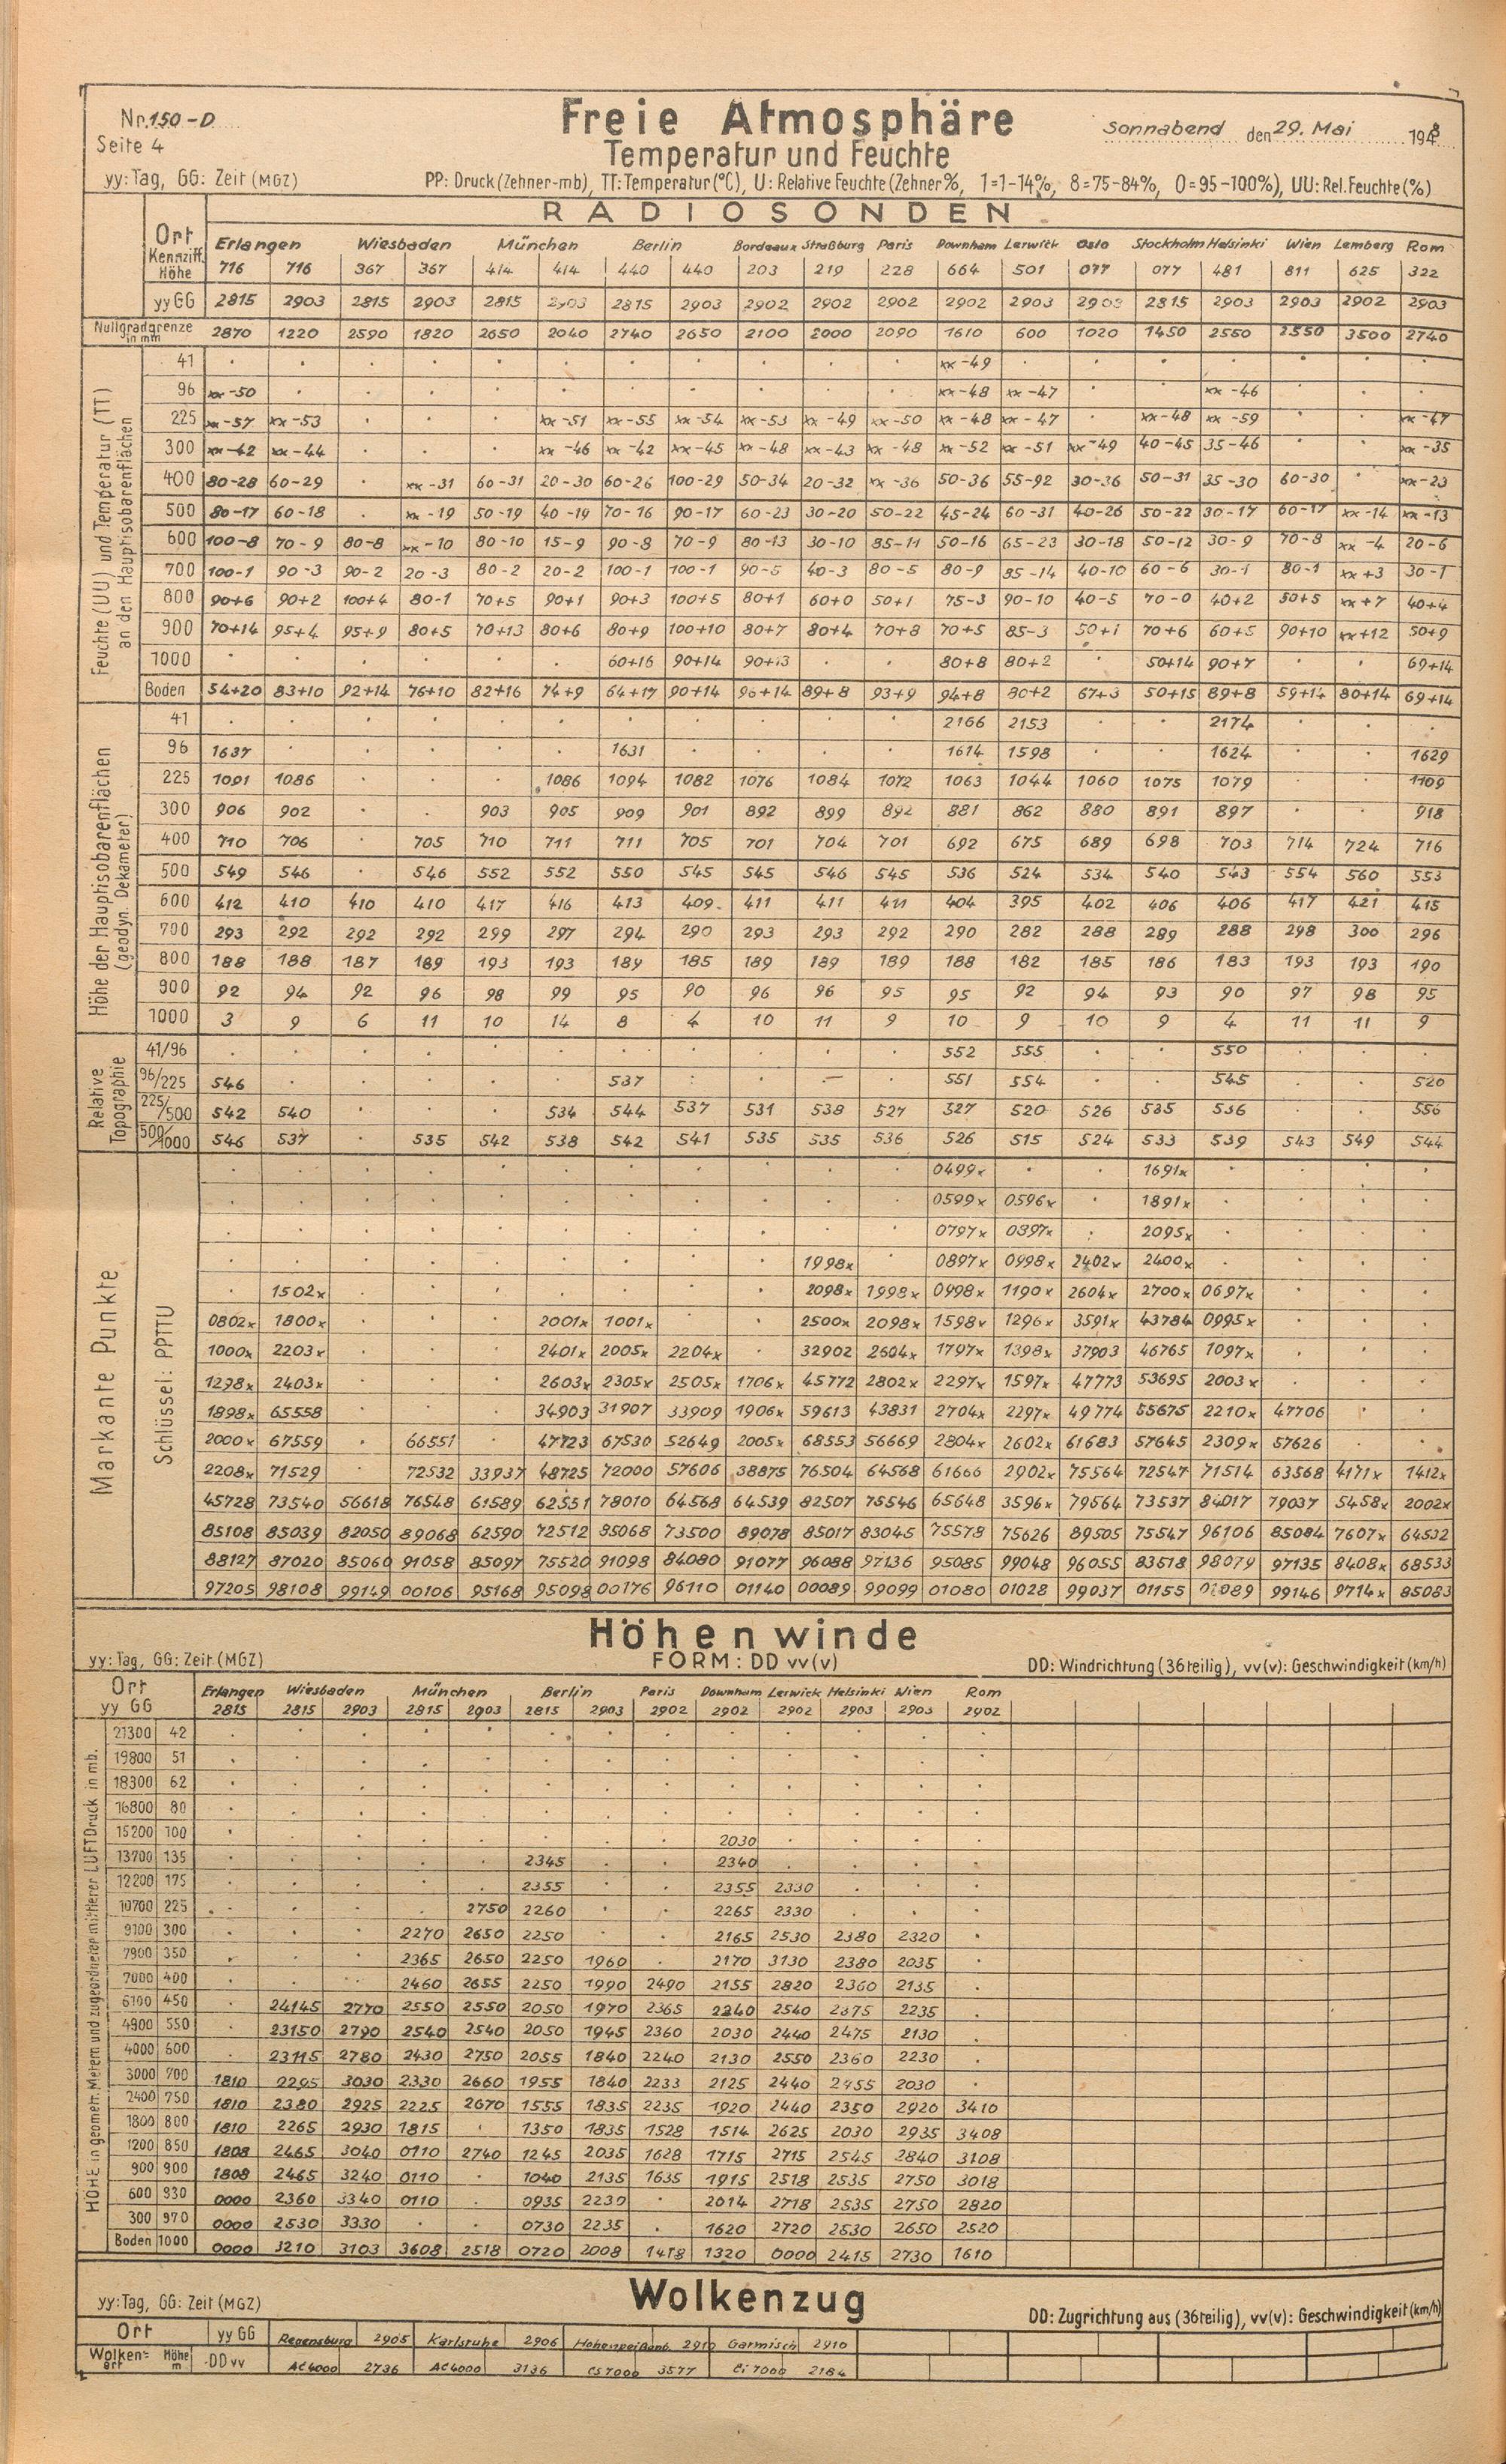 Nr. 150-D
Freie Atmosphäre
Sonnabend den 29. Mai 1948
Seite 4
Temperatur und Feuchte
yy: Tag, GG: Zeit (MGZ) PP: Druck (Zehner-mb), TT: Temperatur (°C), U: Relative Feuchte (Zehner %, 1=1-14%, 8=75-84%, 0=95-100%), UU: Rel. Feuchte (%)
RADIOSONDEN
Ort Erlangen Wiesbaden München Berlin Bordeaux Straßburg Paris Downham Lerwick Oslo Stockholm Helsinki Wien Lemberg Rom
Kennziff. Höhe 716 716 367 367 414 414 440 440 203 219 228 664 501 077 077 481 811 625 322
yy GG 2815 2903 2815 2903 2815 2903 2815 2903 2902 2902 2902 2902 2903 2903 2815 2903 2903 2902 2903
Nullgradgrenze in mm 2870 1220 2590 1820 2650 2040 2740 2650 2100 2000 2090 1610 600 1020 1450 2550 2550 3500 2740
Feuchte (UU) und Temperatur (TT) an den Hauptisobarenflächen
41 . . . . . . . . . . . xx-49 . . . . . . .
96 xx-50 . . . . . . . . . . xx-48 xx-47 . . xx-46 . . .
225 xx-57 xx-53 . . . xx-51 xx-55 xx-54 xx-53 xx-49 xx-50 xx-48 xx-47 . xx-48 xx-59 . . xx-47
300 xx-42 xx-44 . . . xx-46 xx-42 xx-45 xx-48 xx-43 xx-48 xx-52 xx-51 xx-49 40-45 35-46 . . xx-35
400 80-28 60-29 . xx-31 60-31 20-30 60-26 100-29 50-34 20-32 xx-36 50-36 55-92 30-36 50-31 35-30 60-30 . xx-23
500 80-17 60-18 . xx-19 50-19 40-19 70-16 90-17 60-23 30-20 50-22 45-24 60-31 40-26 50-22 30-17 60-17 xx-14 xx-13
600 100-8 70-9 80-8 xx-10 80-10 15-9 90-8 70-9 80-13 30-10 85-11 50-16 65-23 30-18 50-12 30-9 70-8 xx-4 20-6
700 100-1 90-3 90-2 20-3 80-2 20-2 100-1 100-1 90-5 40-3 80-5 80-9 85-14 40-10 60-6 30-1 80-1 xx+3 30-1
800 90+6 90+2 100+4 80-1 70+5 90+1 90+3 100+5 80+1 60+0 50+1 75-3 90-10 40-5 70-0 40+2 50+5 xx+7 40+4
900 70+14 95+4 95+9 80+5 70+13 80+6 80+9 100+10 80+7 80+4 70+8 70+5 85-3 50+1 70+6 60+5 90+10 xx+12 50+9
1000 . . . . . . 60+16 90+14 90+13 . . 80+8 80+2 . 50+14 90+7 . . 69+14
Boden 54+20 83+10 92+14 76+10 82+16 74+9 64+17 90+14 96+14 89+8 93+9 94+8 80+2 67+3 50+15 89+8 59+14 80+14 69+14
Höhe der Hauptisobarenflächen (geodyn. Dekameter)
41 . . . . . . . . . . . 2166 2153 . . 2174 . . .
96 1637 . . . . . 1631 . . . . 1614 1598 . . 1624 . . 1629
225 1091 1086 . . . 1086 1094 1082 1076 1084 1072 1063 1044 1060 1075 1079 . . 1109
300 906 902 . . 903 905 909 901 892 899 892 881 862 880 891 897 . . 918
400 710 706 . 705 710 711 711 705 701 704 701 692 675 689 698 703 714 724 716
500 549 546 . 546 552 552 550 545 545 546 545 536 524 534 540 543 554 560 553
600 412 410 410 410 417 416 413 409 411 411 411 404 395 402 406 406 417 421 415
700 293 292 292 292 299 297 294 290 293 293 292 290 282 288 289 288 298 300 296
800 188 188 187 189 193 193 189 185 189 189 189 188 182 185 186 183 193 193 190
900 92 94 92 96 98 99 95 90 96 96 95 95 92 94 93 90 97 98 95
1000 3 9 6 11 10 14 8 4 10 11 9 10 9 10 9 4 11 11 9
Relative Topographie
41/96 . . . . . . . . . . . 552 555 . . 550 . . .
96/225 546 . . . . . 537 . . . . 551 554 . . 545 . . 520
225/500 542 540 . . . 534 544 537 531 538 527 527 520 526 535 536 . . 556
500/1000 546 537 . 535 542 538 542 541 535 535 536 526 515 524 533 539 543 549 544
Markante Punkte
Schlüssel: PPTTU
0499x 1691x
0599x 0596x 1891x
0797x 0897x 2095x
1998x 0897x 0998x 2402x 2400x
1502x 2098x 1998x 0998x 1190x 2604x 2700x 0697x
0802x 1800x 2001x 1001x 2500x 2098x 1598x 1296x 3591x 43784 0995x
1000x 2203x 2401x 2005x 2204x 32902 2604x 1797x 1398x 37903 46765 1097x
1298x 2403x 2603x 2305x 2505x 1706x 45772 2802x 2297x 1597x 47773 53695 2003x
1898x 65558 34903 31907 33909 1906x 59613 43831 2704x 2297x 49774 55675 2210x 47706
2000x 67559 66551 47723 67530 52649 2005x 68553 56669 2804x 2602x 61683 57645 2309x 57626
2208x 71529 72532 33937 48725 72000 57606 38875 76504 64568 61666 2902x 75564 72547 71514 63568 4171x 1412x
45728 73540 56618 76548 61589 62551 78010 64568 64539 82507 75546 65648 3596x 79564 73537 84017 79037 5458x 2002x
85108 85039 82050 89068 62590 72512 85068 73500 89078 85017 83045 75579 75626 89505 75547 96106 85084 7607x 64532
88127 87020 85060 91058 85097 75520 91098 84080 91077 96088 97136 95085 99048 96055 83518 98079 97135 8408x 68533
97205 98108 99149 00106 95168 95098 00176 96110 01140 00089 99099 01080 01028 99037 01155 01089 99146 9714x 85083
Höhenwinde
yy: Tag, GG: Zeit (MGZ) FORM: DD vv(v) DD: Windrichtung (36teilig), vv(v): Geschwindigkeit (km/h)
Ort Erlangen Wiesbaden München Berlin Paris Downham Lerwick Helsinki Wien Rom
yy GG 2815 2815 2903 2815 2903 2815 2903 2902 2902 2902 2903 2903 2902
HÖHE in geometr. Metern und zugeordneter mittlerer LUFTDruck in mb.
21300 42
19800 51
18300 62
16800 80
15200 100 2030
13700 135 2345 2340
12200 175 2355 2355 2330
10700 225 2750 2260 2265 2330
9100 300 2270 2650 2250 2165 2530 2380 2320
7900 350 2365 2650 2250 1960 2170 3130 2380 2035
7000 400 2460 2655 2250 1990 2490 2155 2820 2360 2135
6100 450 24145 2770 2550 2550 2050 1970 2365 2240 2540 2375 2235
4900 550 23150 2790 2540 2540 2050 1945 2360 2030 2440 2475 2130
4000 600 23115 2780 2430 2750 2055 1840 2240 2130 2550 2360 2230
3000 700 1810 2295 3030 2330 2660 1955 1840 2233 2125 2440 2455 2030
2400 750 1810 2380 2925 2225 2670 1555 1835 2235 1920 2440 2350 2920 3410
1800 800 1810 2265 2930 1815 . 1350 1835 1528 1514 2625 2030 2935 3408
1200 850 1808 2465 3040 0110 2740 1245 2035 1628 1715 2715 2545 2840 3108
900 900 1808 2465 3240 0110 . 1040 2135 1635 1915 2518 2535 2750 3018
600 930 0000 2360 3340 0110 . 0935 2230 . 2014 2718 2535 2750 2820
300 970 0000 2530 3330 . . 0730 2235 . 1620 2720 2530 2650 2520
Boden 1000 0000 3210 3103 3608 2518 0720 2008 1418 1320 0000 2415 2730 1610
Wolkenzug
yy: Tag, GG: Zeit (MGZ) DD: Zugrichtung aus (36teilig), vv(v): Geschwindigkeit (km/h)
Ort yy GG Regensburg 2905 Karlsruhe 2906 Hohenpeißenb. 2910 Garmisch 2910
Wolken-art Höhe m DD vv Ac 4000 2736 Ac 4000 3136 Cs 7000 3577 Ci 7000 2184